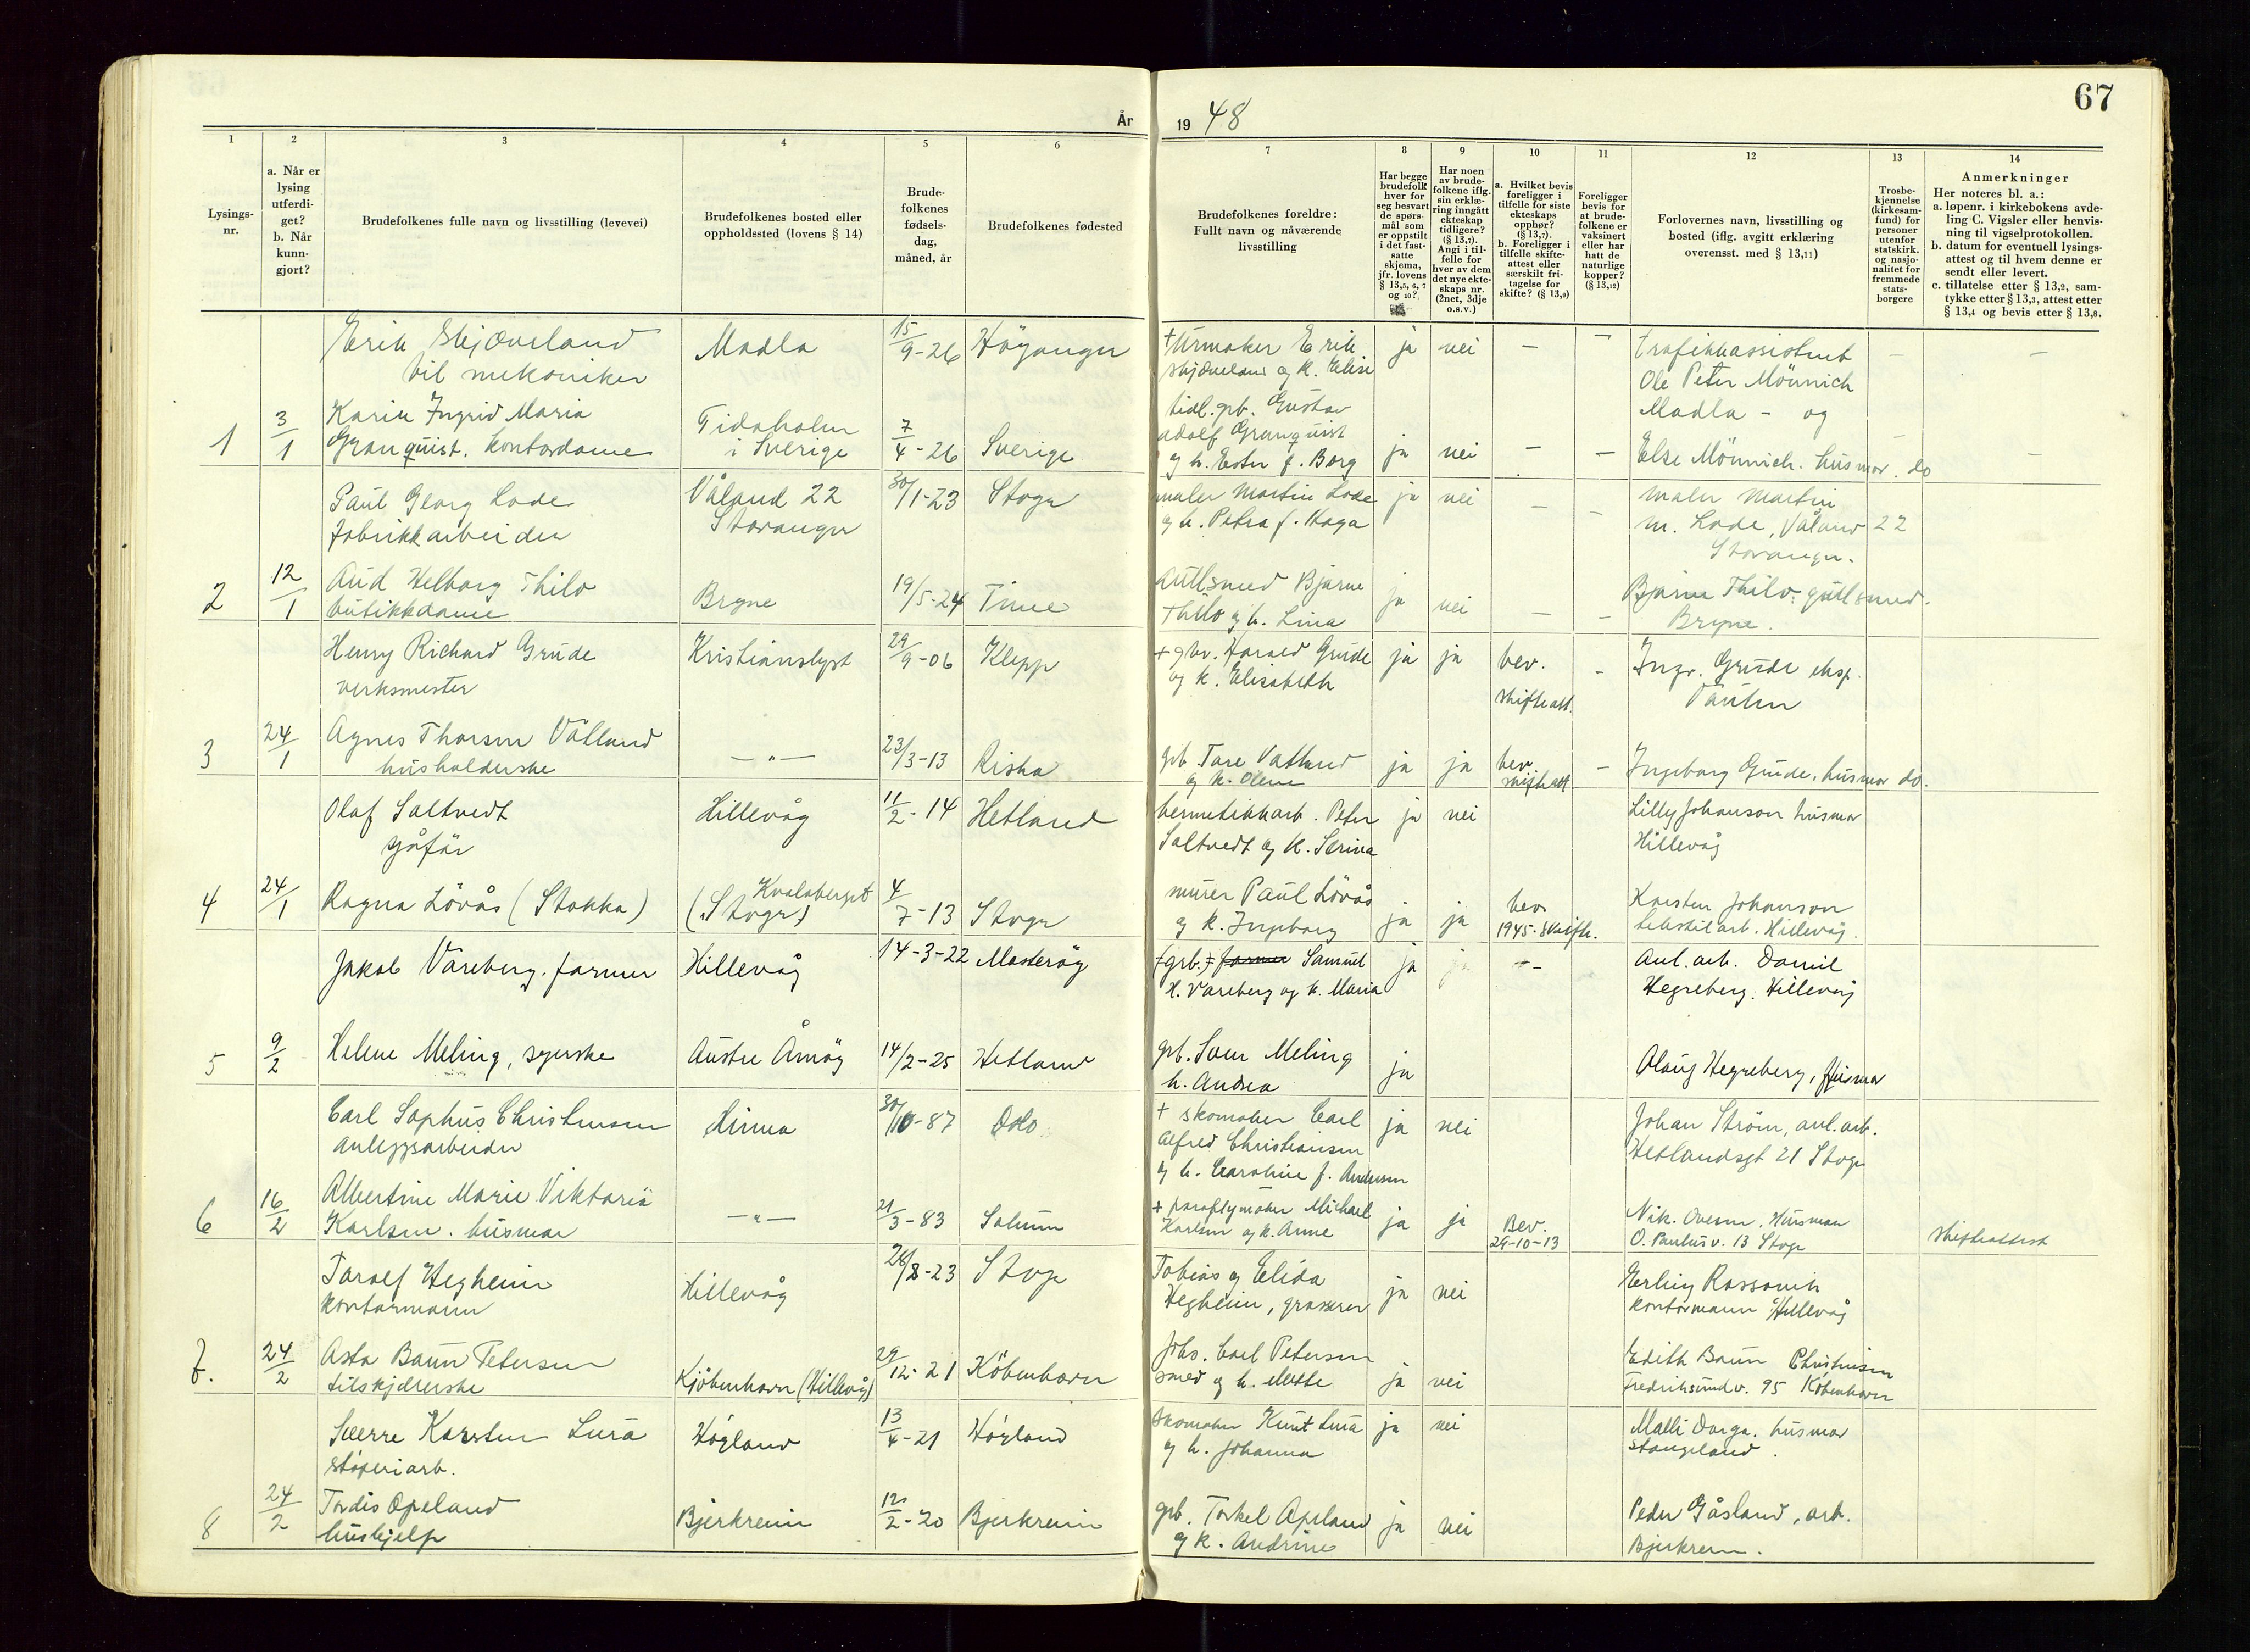 67
År 1948
1
2
3
4
5
6
7
8
9
10
11
12
13
14
Lysings-
nr.
a. Når er
lysing
utferdi-
get?
b. Når
kunn-
gjort?
Brudefolkenes fulle navn og livsstilling (levevei)
Brudefolkenes bosted eller
oppholdssted (lovens § 14)
Brude-
folkenes
fødsels-
dag,
måned, år
Brudefolkenes fødested
Brudefolkenes foreldre:
Fullt navn og nåværende
livsstilling
Har begge
brudefolk
hver for
seg besvart
de spørs-
mål som
er oppstilt
i det fast-
satte
skjema,
jfr. lovens
§ 13,5, 6, 7
og 10?
Har noen
av brude-
folkene iflg.
sin erklæ-
ring inngått
ekteskap
tidligere?
(§ 13,7).
Angi i til-
felle for
hver av dem
det nye ekte-
skaps nr.
(2net, 3dje
o.s.v.)
a. Hvilket bevis
foreligger i
tilfelle for siste
ekteskaps
opphør?
(§ 13,7).
b. Foreligger i
tilfelle skifte-
attest eller
særskilt fri-
tagelse for
skifte? (§ 13,9)
Foreligger
bevis for
at brude-
folkene er
vaksinert
eller har
hatt de
naturlige
kopper?
(§ 13,12)
Forlovernes navn, livsstilling og
bosted (iflg. avgitt erklæring
overensst. med § 13,11)
Trosbe-
kjennelse
(kirkesam-
fund) for
personer
utenfor
statskirk.
og nasjo-
nalitet for
fremmede
stats-
borgere
Anmerkninger
Her noteres bl. a.:
a. løpenr. i kirkebokens avde-
ling C. Vigsler eller henvis-
ning til vigselprotokollen.
b. datum for eventuell lysings-
attest og til hvem denne er
sendt eller levert.
c. tillatelse etter § 13,2, sam-
tykke etter § 13,3, attest etter
§ 13,4 og bevis etter § 13,8.
Erik Skjæveland Madla 15/9-26 Höyanger †Urmaker Erik ja nei — — trafikkassistent — —
bil mekaniker Skjæveland og k. Elise Ole Peter Mönnich
Karin Ingrid Maria Tidaholm tidl. gb. Gustav Madla - og
1 3/1 Granquist. kontordame i Sverige 7/4-26 Sverige Adolf Granquist ja nei — — Else Mönnich. husmor. do —
og h. Ester f. Borg
Paul Georg Lode Våland 22 30/1-23 Stvgr maler Martin Lode ja nei — — maler Martin
fabrikkarbeider Stavanger og h. Petra f. Haga M. Lode, Våland 22
Stavanger.
2 12/1 Aud Helborg Thilo Bryne 19/5-24 Time Gullsmed Bjarne ja nei — — Bjarne Thilo, gullsmed.
butikkdame Thilo og h. Lina Bryne.
Henry Richard Grude Kristianslyst 29/9-06 Klepp + gbr. Harald Grude ja ja bev. - Ingv. Grude eksp.
verksmester og k. Elisabeth skifteatt. Tautra
3 24/1 Agnes Thorsen Våtland —"— 23/3-13 Riska gb. Tore Vatland ja ja bev. — Ingeborg Grude, husmor do.
husholderske og k. Olene skifteatt
Olaf Saltvedt Hillevåg 11/2-14 Hetland hermetikkarb. Peter ja nei Lilly Johanson husmor
sjåfär Saltvedt og k. Serina Hillevåg
4 24/1 Ragna Lövås (Stokka) Kvaleberget (Stvgr) 4/7-13 Stvgr murer Paul Lövås ja ja bev. Karsten Johanson
og k. Ingeborg 1945. skifte. tekstilarb. Hillevåg.
Jakob Vareberg. farmer Hillevåg 14-3-22 Mosteröy (grb.) + farmer Samuel ja ja -- Anl. arb. Daniel
H. Vareberg og k. Maria Hegreberg. Hillevåg
5 9/2 Helene Meling, syerske Austre Åmöy 14/2-25 Hetland grb. Sven Meling ja Olaug Hegreberg, Husmor
h. Andrea
Carl Sophus Christensen Hinna 30/10-87 Oslo + skomaker Carl ja nei Johan Ström, anl. arb.
anleggsarbeider Alfred Christiansen Hetlandsgt 21 Stvgr
og h. Caroline f. Andersen
6 16/2 Albertine Marie Viktoria —"— 21/3-83 Solum + paraplymaker Michael ja ja Bev. Nik. Ovesen. Husmann Skifteattest
Karlsen. husmor Karlsen og k. Anne 29-10-13 O. Paulusv. 13 Stvgr
Tarald Hegheim Hillevåg 28/8-23 Stvgr Tobias og Elida ja nei Erling Rossavik
kontormann Hegheim, grosserer kontormann Hillevåg
7. 24/2 Asta Baun Petersen Kjöbenhavn (Hillevåg) 29/12-21 Köbenhavn Johs. Carl Petersen ja nei Edith Baun Christensen
tilskjærerske smed og h. Mette Fredriksundv. 95 Köbenhavn
Sverre Karsten Lura Höyland 13/4-21 Höyland skomaker Knut Lura ja nei Malli Varga. husmor
støperiarb. og h. Johanna Stangeland.
8 24/2 Tordis Opeland Bjerkreim 12/2-20 Bjerkreim grb. Torkel Apeland ja nei Peder Gåsland, arb.
hushjelp og k. Andrine Bjerkreim.